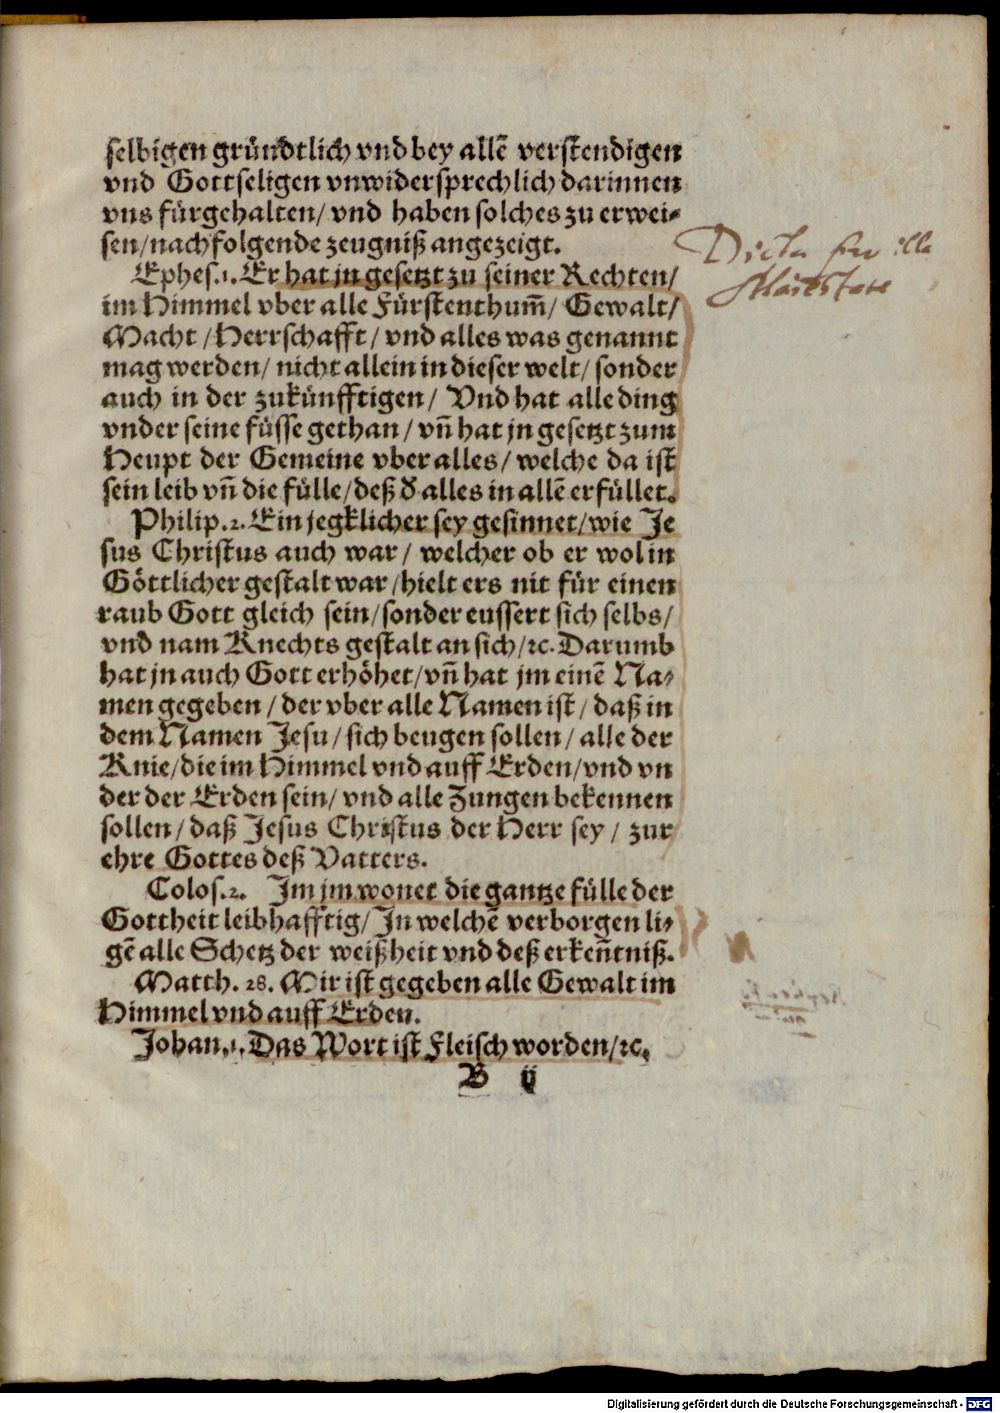 selbigen gründtlich vnd bey allē verstendigen
vnd Gottseligen vnwidersprechlich darinnen
vns fürgehalten/ vnd haben solches zu erwei-
sen/ nachfolgende zeugniß angezeigt.
Ephes.1. Er hat jn gesetzt zu seiner Rechten/
im Himmel vber alle Fürstenthum̄/ Gewalt/
Macht/ Herrschafft/ vnd alles was genannt
mag werden/ nicht allein in dieser welt/ sonder
auch in der zukünfftigen/ Vnd hat alle ding
vnder seine füsse gethan/ vn̄ hat jn gesetzt zum
Heupt der Gemeine vber alles/ welche da ist
sein leib vn̄ die fülle/ deß d̓ alles in allē erfüllet.
Philip.2. Ein jegklicher sey gesinnet/ wie Je
sus Christus auch war/ welcher ob er wol in
Göttlicher gestalt war/ hielt ers nit für einen
raub Gott gleich sein/ sonder eussert sich selbs/
vnd nam Knechts gestalt an sich/ ⁊c. Darumb
hat jn auch Gott erhöhet/ vn̄ hat jm einē Na-
men gegeben/ der vber alle Namen ist/ daß in
dem Namen Jesu/ sich beugen sollen/ alle der
Knie/ die im Himmel vnd auff Erden/ vnd vn
der der Erden sein/ vnd alle Zungen bekennen
sollen/ daß Jesus Christus der Herr sey/ zur
ehre Gottes deß Vatters.
Colos.2. Im jm wonet die gantze fülle der
Gottheit leibhafftig/ In welchē verborgen li-
gē alle Schetz der weißheit vnd deß erken̄tniß.
Matth. 28. Mir ist gegeben alle Gewalt im
Himmel vnd auff Erden.
Johan.1. Das Wort ist Fleisch worden/ ⁊c.
B ij
Dicta
Digitalisierung gefördert durch die Deutsche Forschungsgemeinschaft - DFG